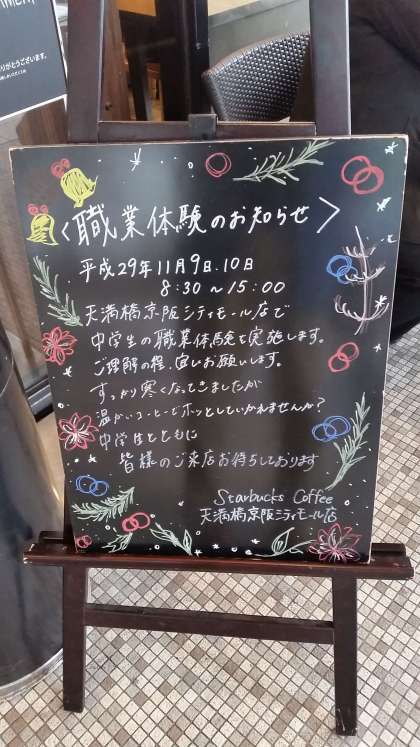 りがとうございます。
<職業体験のお知らせ>
平成29年11月9日.10日
8:30～15:00
天満橋京阪シティモール店で
中学生の職業体験を実施します。
ご理解の程、宜しくお願いします。
すっかり寒くなってきましたが
温かいコーヒーでホッとしていかれませんか?
中学生とともに
皆様のご来店お待ちしております
Starbucks Coffee
天満橋京阪シティモール店